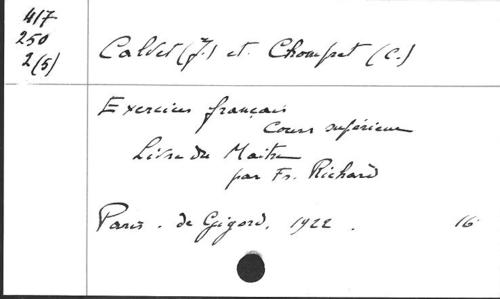 417
250
2(5)
Calvet (J.) et Chompret (C.)
Exercices français
Cours supérieur
Livre du Maître
par Fr. Richard
Paris. de Gigord, 1922. 16